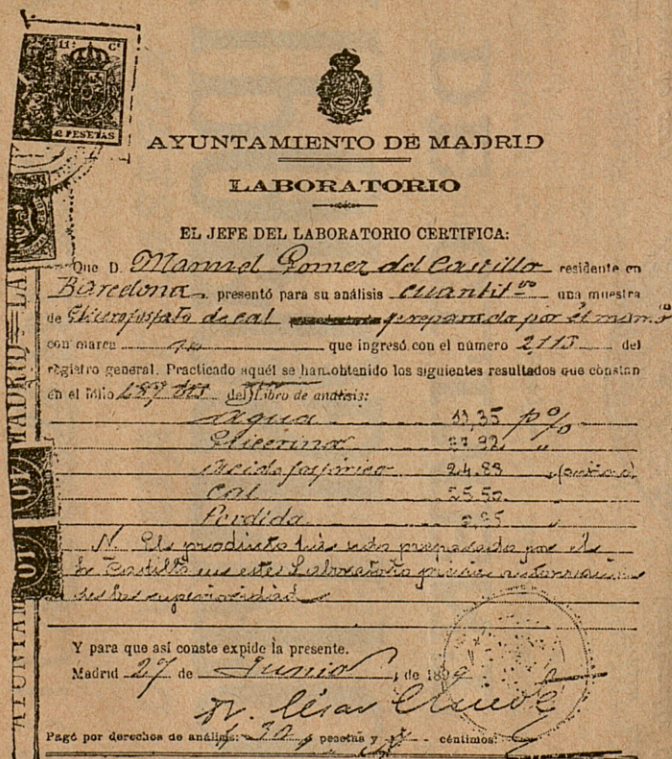 11ª Cª
2 PESETAS
AYUNTAMIENTO DE MADRID
LABORATORIO
EL JEFE DEL LABORATORIO CERTIFICA:
Que D. Manuel Gomez del Castillo residente en
Barcelona presentó para su análisis cuantitvo una muestra
de Glicerofosfato de cal preparada por él mismo
con marca no que ingresó con el número 2115 del
registro general. Practicado aquél se han obtenido los siguientes resultados que constan
en el fólio 187 del Libro de análisis:
Agua 11,35 p%
Glicerina "
Acido fosfórico 24.88 "
Cal 25.50
Perdida "
N. El producto ha sido preparado por el
Sr Castillo en este Laboratorio previa autorización
de la superioridad
Y para que así conste expide la presente.
Madrid 27 de Junio de 189
Dr. César Chicote
Pagó por derechos de análisis: 30 pesetas y céntimos:
AYUNTAM
10
10
MADRID
LA